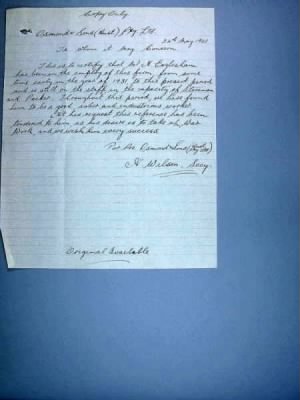 Copy Only
Osmond & Sons (Aust) Pty Ltd.
26th May 1941
To whom it May Concern
This is to certify that Mr H
has been in the employ of this firm, from some
time early in the year of 1931 to this present period
and is still on the staff in the capacity of Storeman
and Packer. Throughout this period, we have found
him to be a good, sober and industrious worker.
At his request this reference has been
tendered to him as his desire is to take up War
Work, and we wish him every success.
Per Pro Osmond & Sons (Aust) Pty Ltd
A. Wilson, Secy.
Original Available